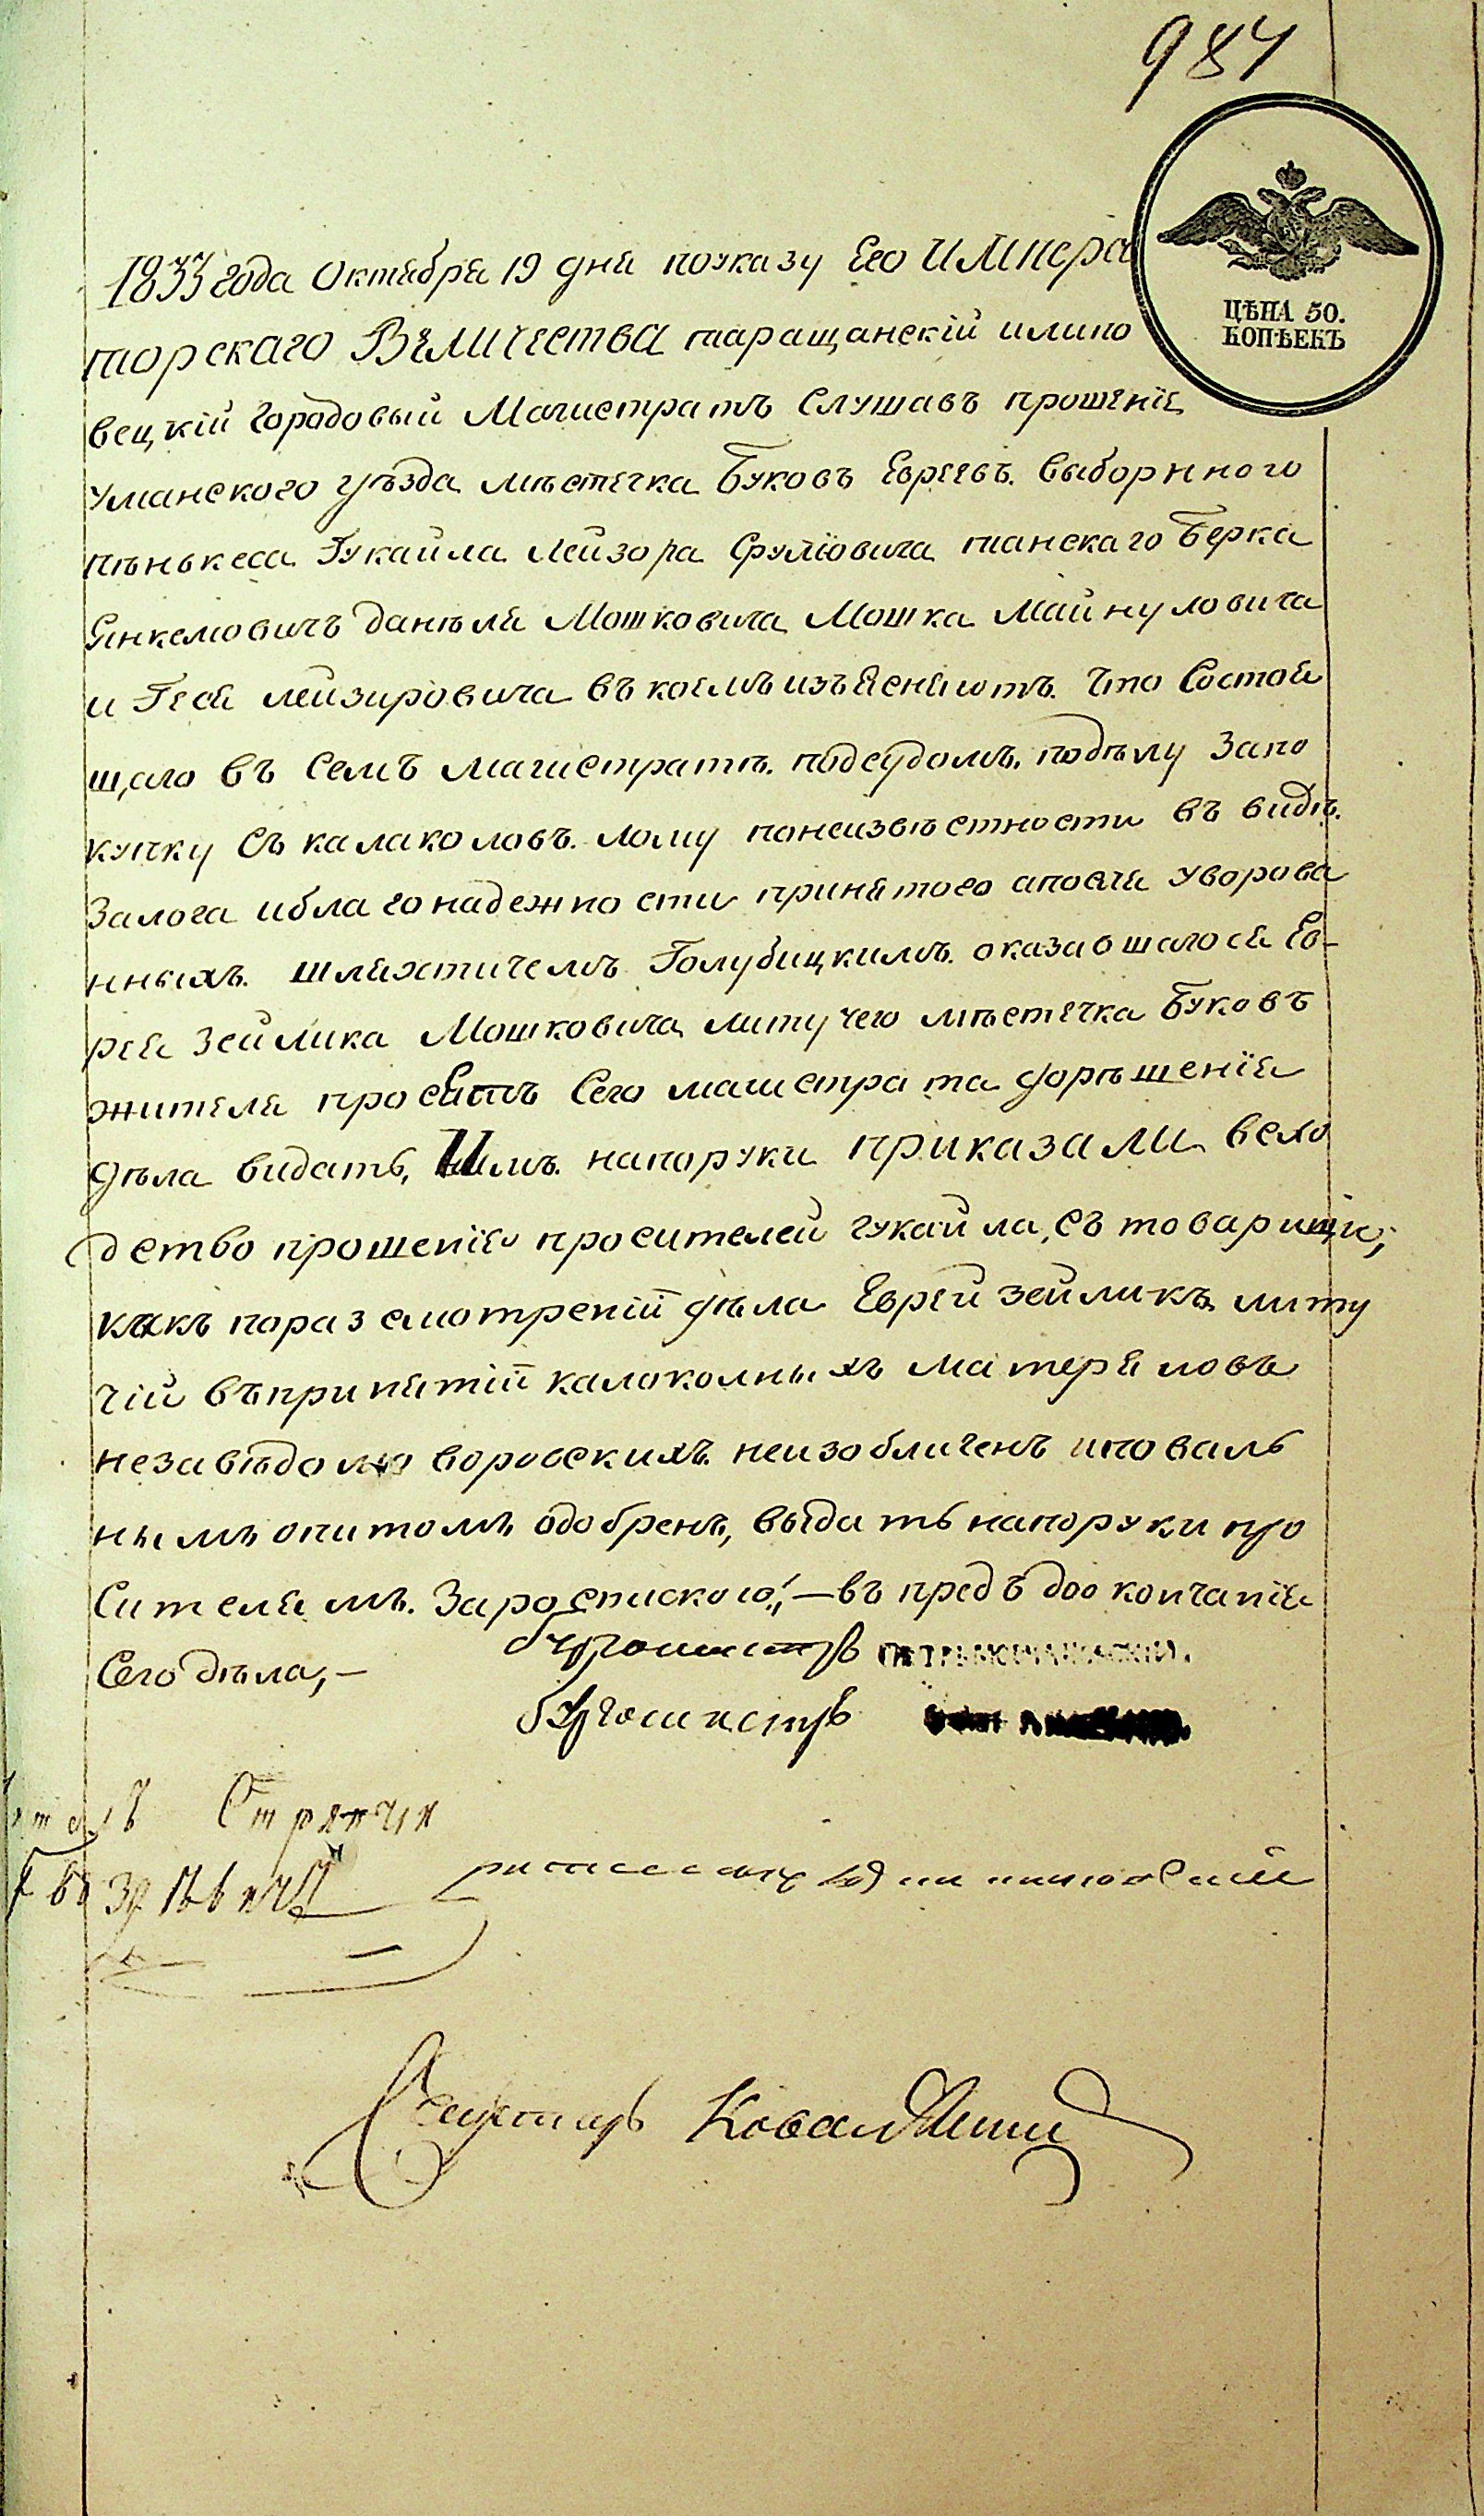 984
ЦѢНА 50.
КОПѢЕКЪ
1833 года Октября 19 дня поуказу Его Импера
торскаго Величества таращанскій илипо
вецкій Городовый Магистратъ Слушавъ прошеніе
Уманского уѣзда мѣстечка Буковъ Евреевъ. выборнного
Лейзора Сруліовича танскаго Берка
Янкеліовичъ данѣля Мошковича Мошка Майнуловича
и Геся лейзировича въ коемъ изъясняютъ. что Состоя
щаго въ Семъ магистратѣ. подсудомъ. подѣлу Запо
купку съ калаколовъ. лому понеизвѣстности въ видѣ.
Залога иблагонадежности принятого апосля уворова
нныхъ. шляхтичемъ Голубицкимъ. оказавшагося Ев-
рея Зейлика Мошковича литучего мѣстечка Буковъ
жителя просятъ Сего магистрата дорѣшенія
дѣла видать, Имъ. напоруки приказали всхо
дство прошенію просителей гукайла, съ товарищи,
какъ поразсмотреній дѣла Еврей зейликъ литу
чій въпринятій калоколныхъ матеряловъ
незавѣдомо воровскихъ. неизобличенъ иповаль
нымъ опитомъ одобренъ, выдать напоруки про
Сителямъ. Заросспискою,— въ предъ доокончанія
Сего дѣла,—
бургомистръ
бургомистръ
Стряпчи
Секретарь